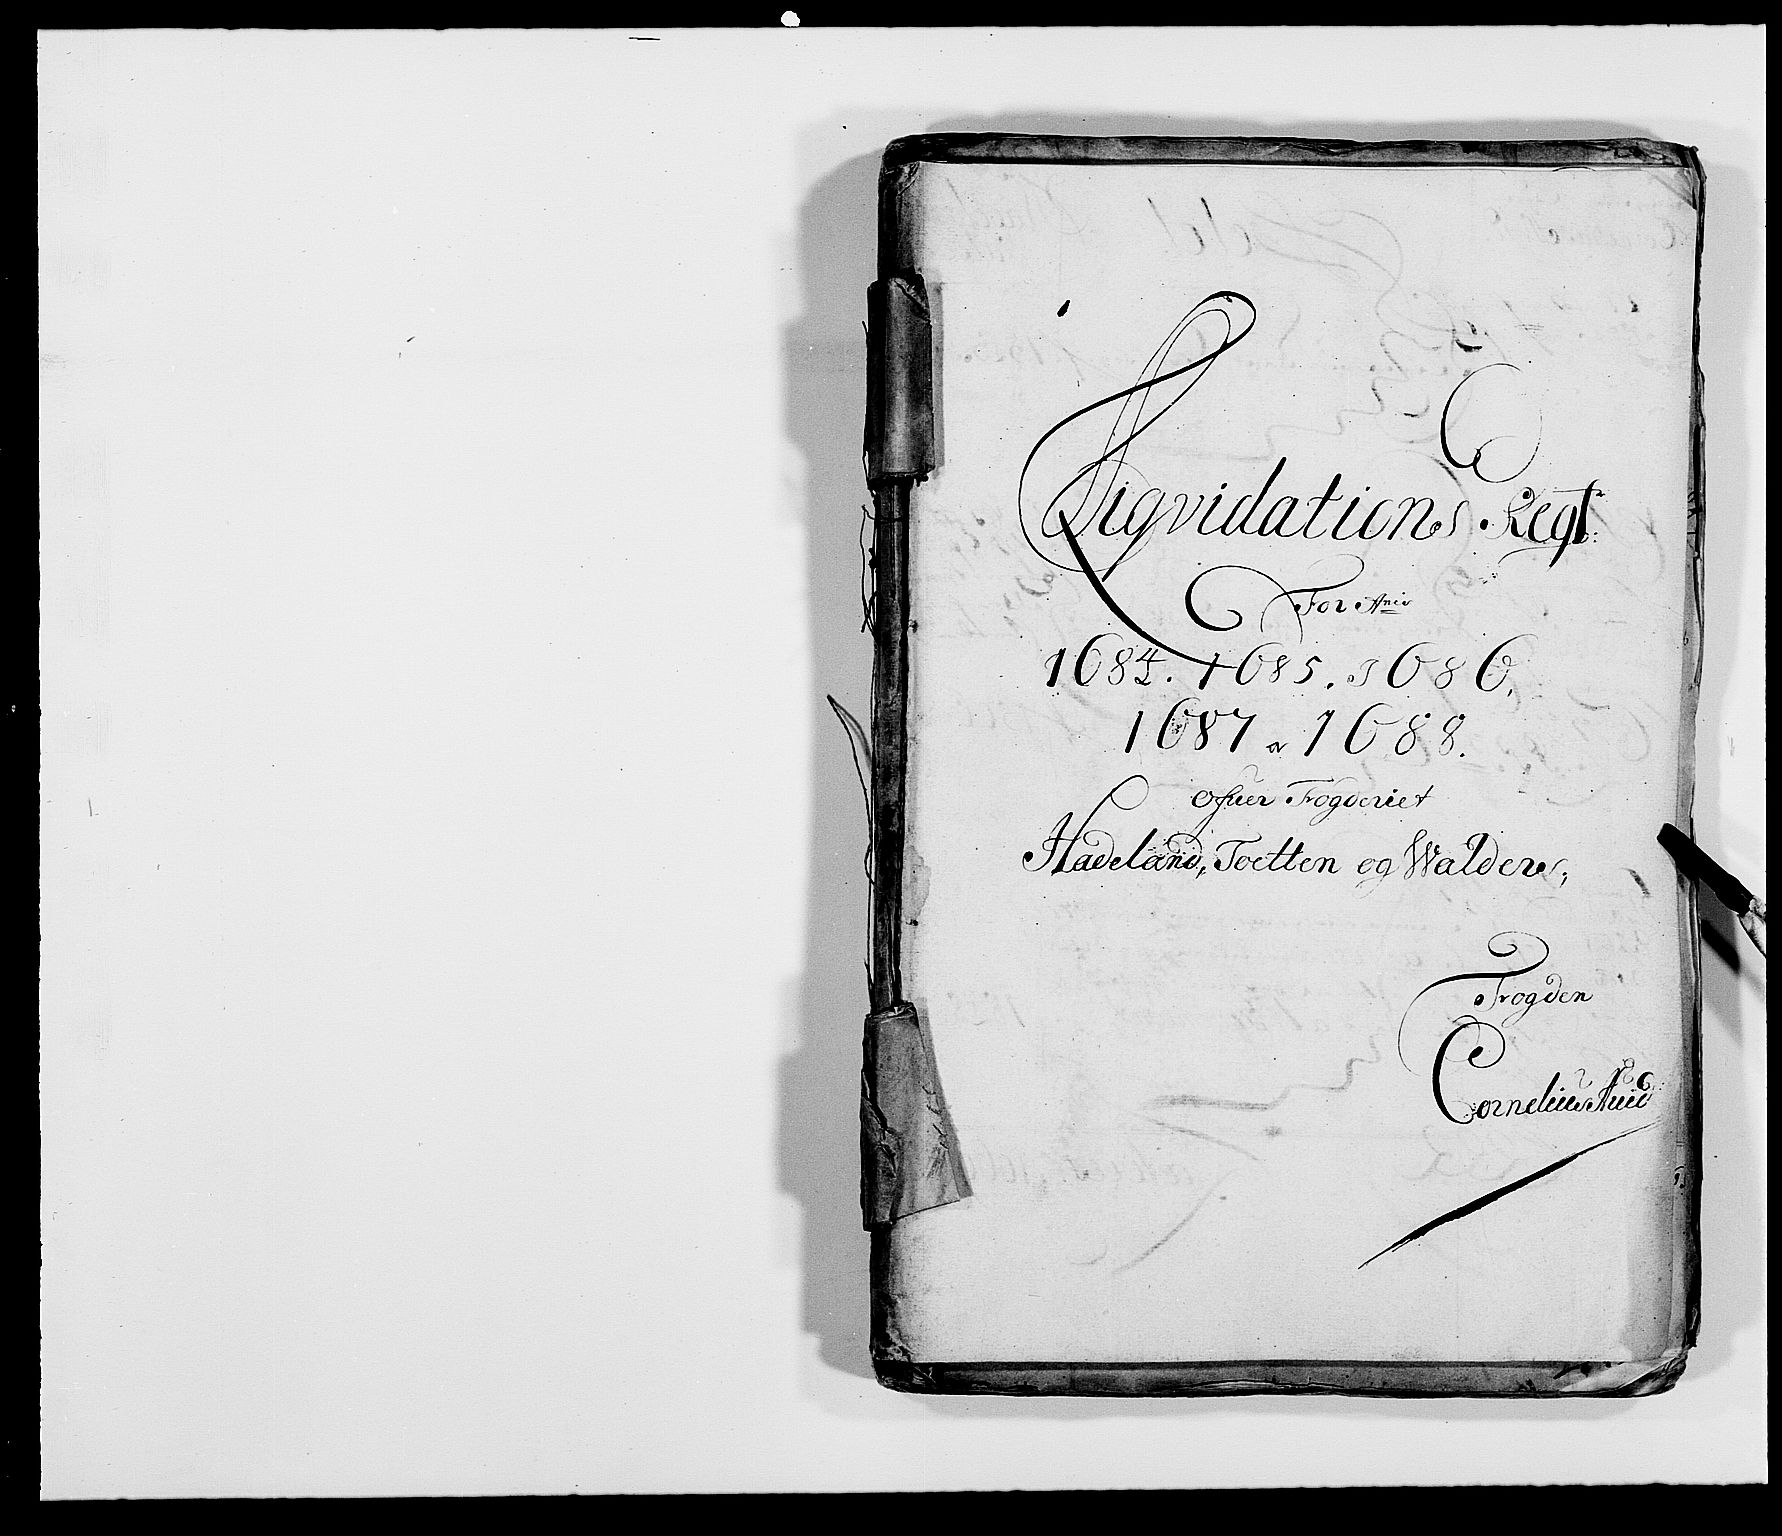 Liqvidations Regt:
For Anis
1684. 1685. 1686,
1687 a 1688.
Ofuer Fogderiet
Hadeland, Toetten og Walders,
Frogden
Cornelius